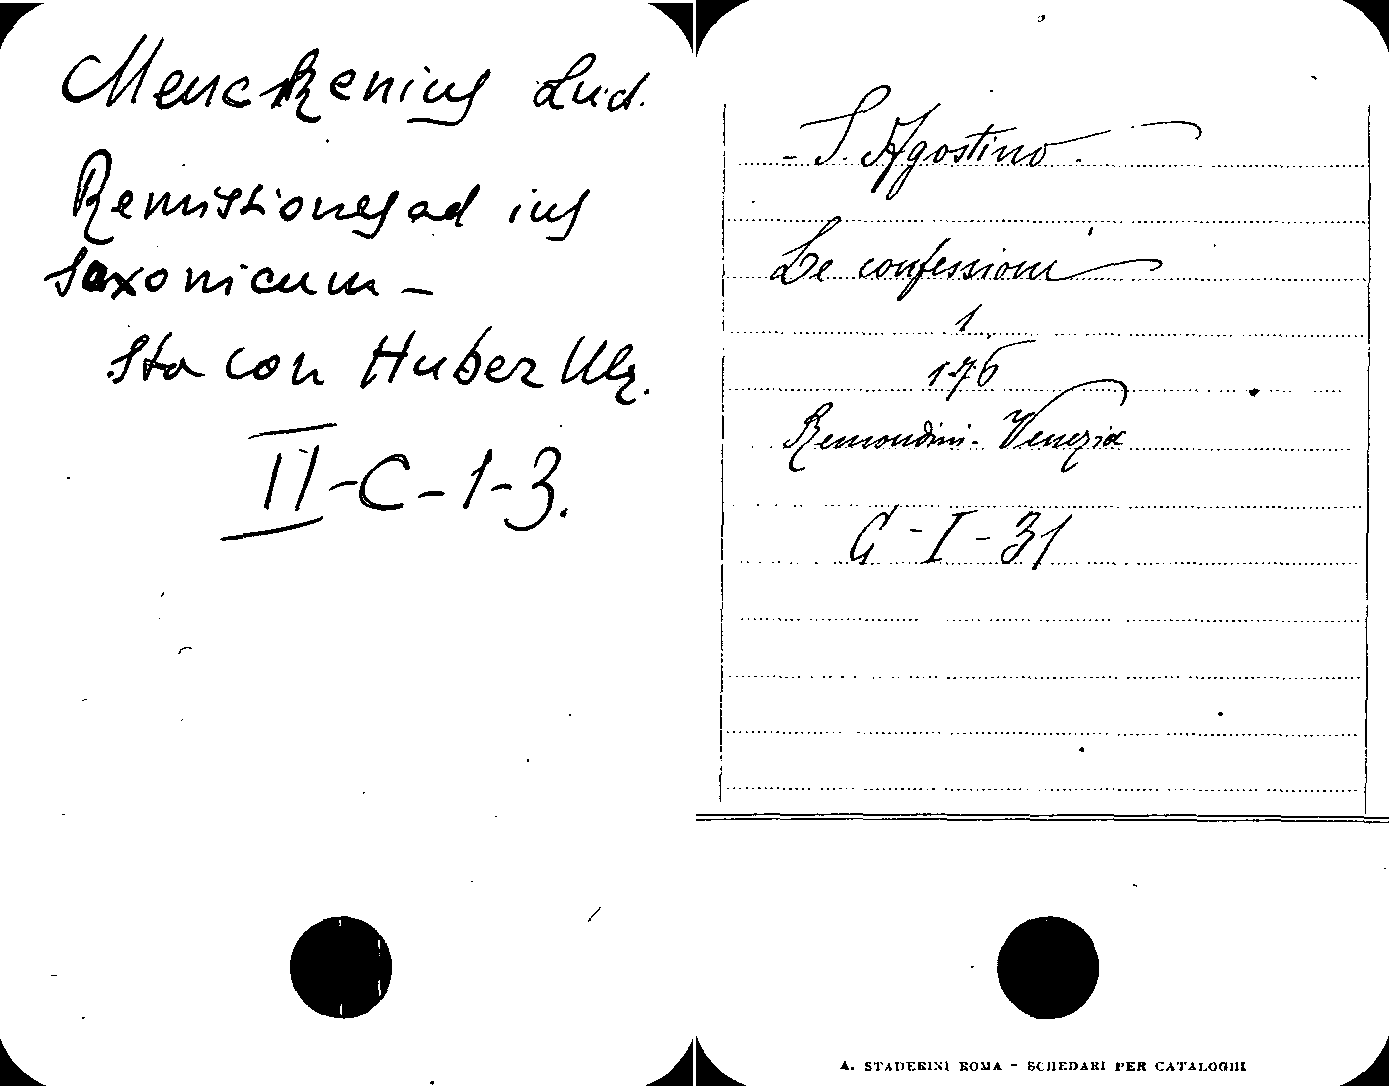 Menckenius Lud.
Remissiones ad ius
saxonicum -
Sta con Huber Ulr.
II-C-1-3.
- S. Agostino.
Le confessioni
1
176
Remondini - Venezia
G - I - 31
A. STADERINI ROMA - SCHEDARI PER CATALOGHI